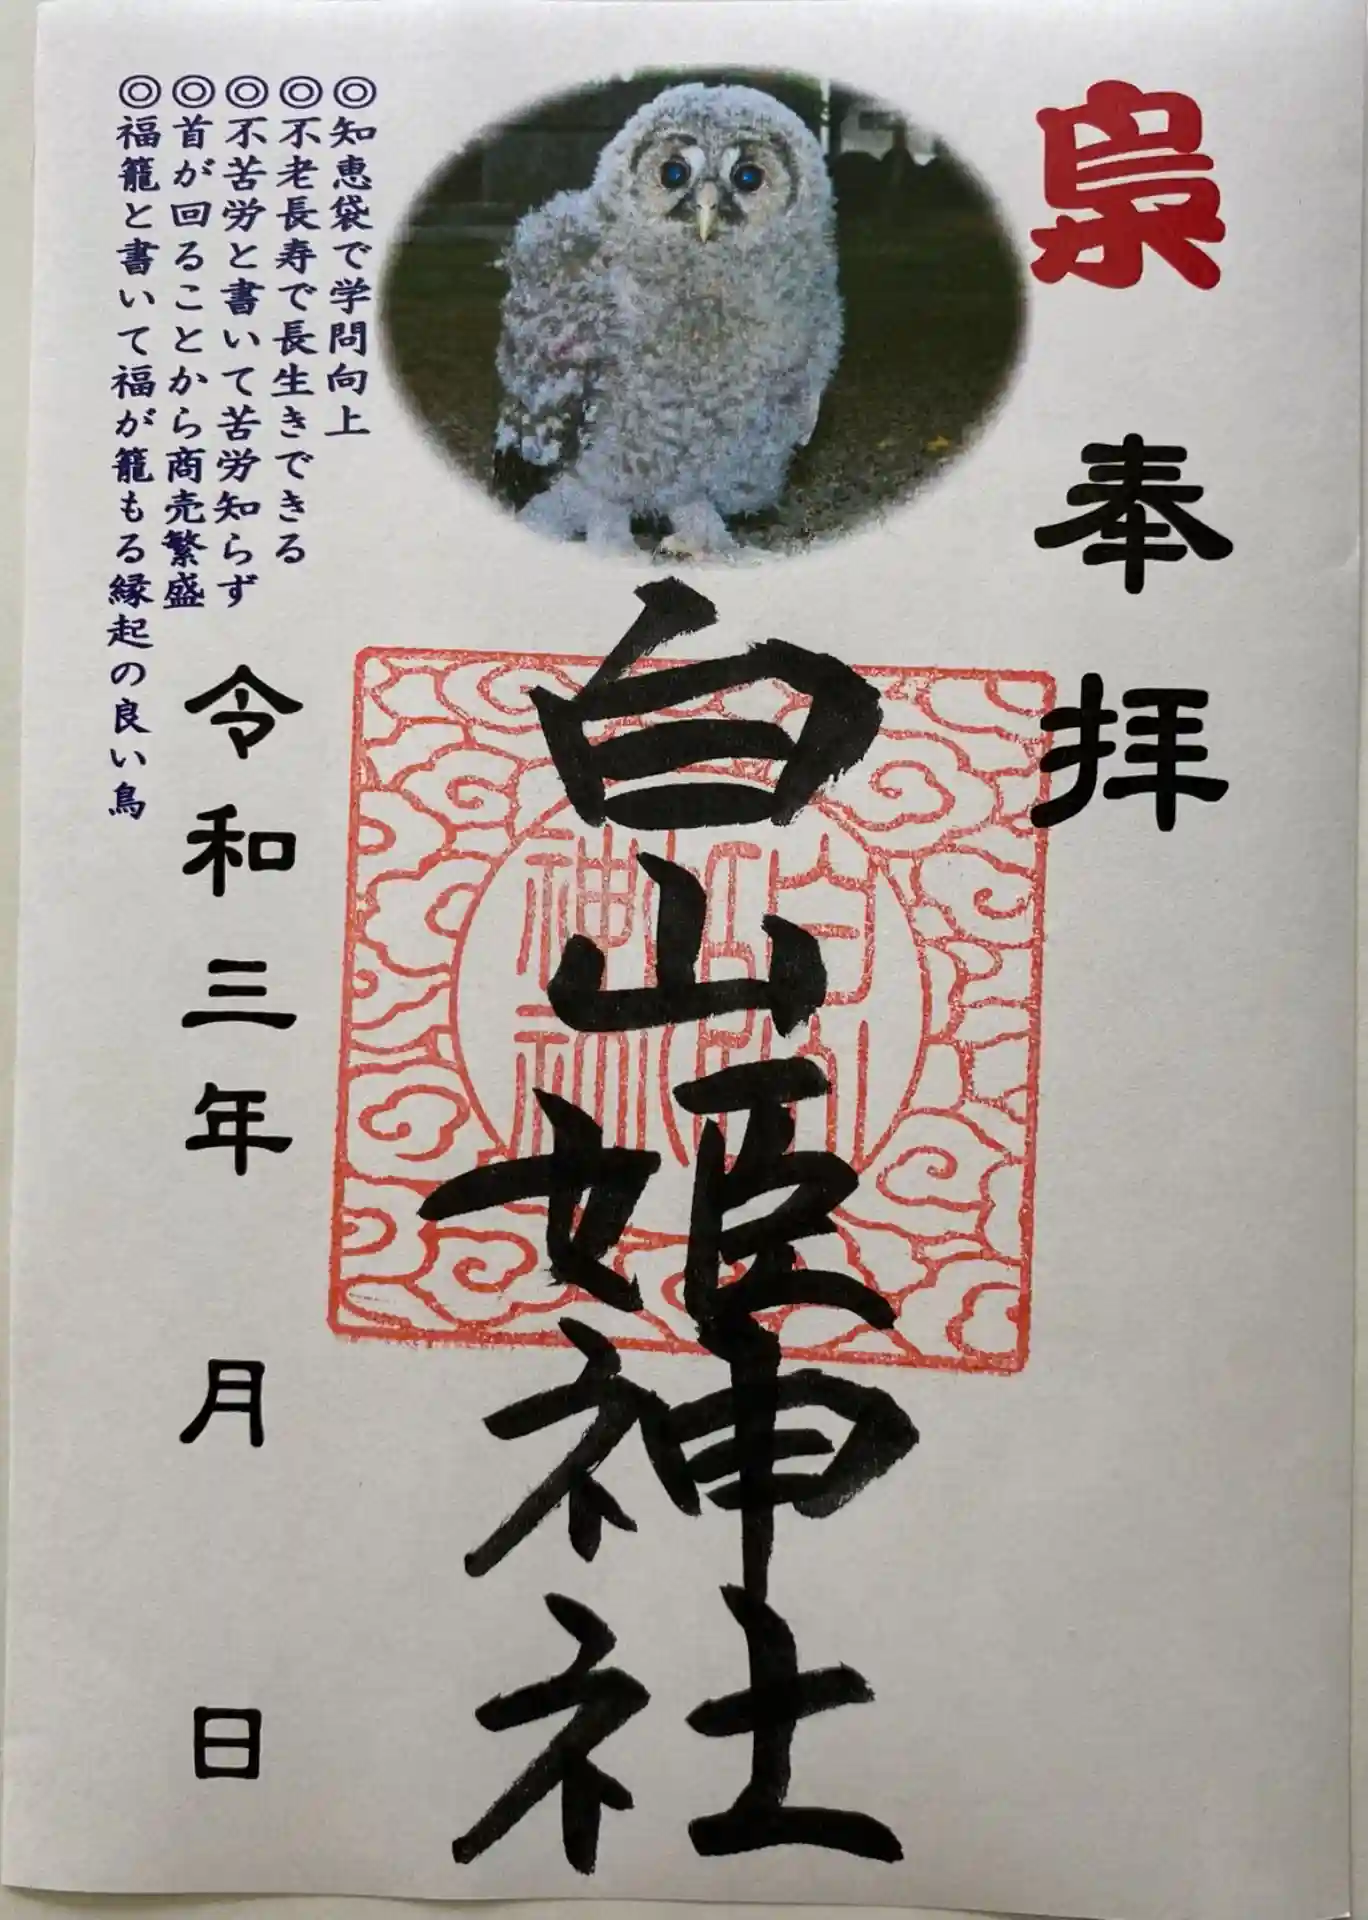 梟
奉拝
白山姫神社
◎知恵袋で学問向上
◎不老長寿で長生きできる
◎不苦労と書いて苦労知らず
◎首が回ることから商売繁盛
◎福籠と書いて福が籠もる縁起の良い鳥
令和三年 月 日